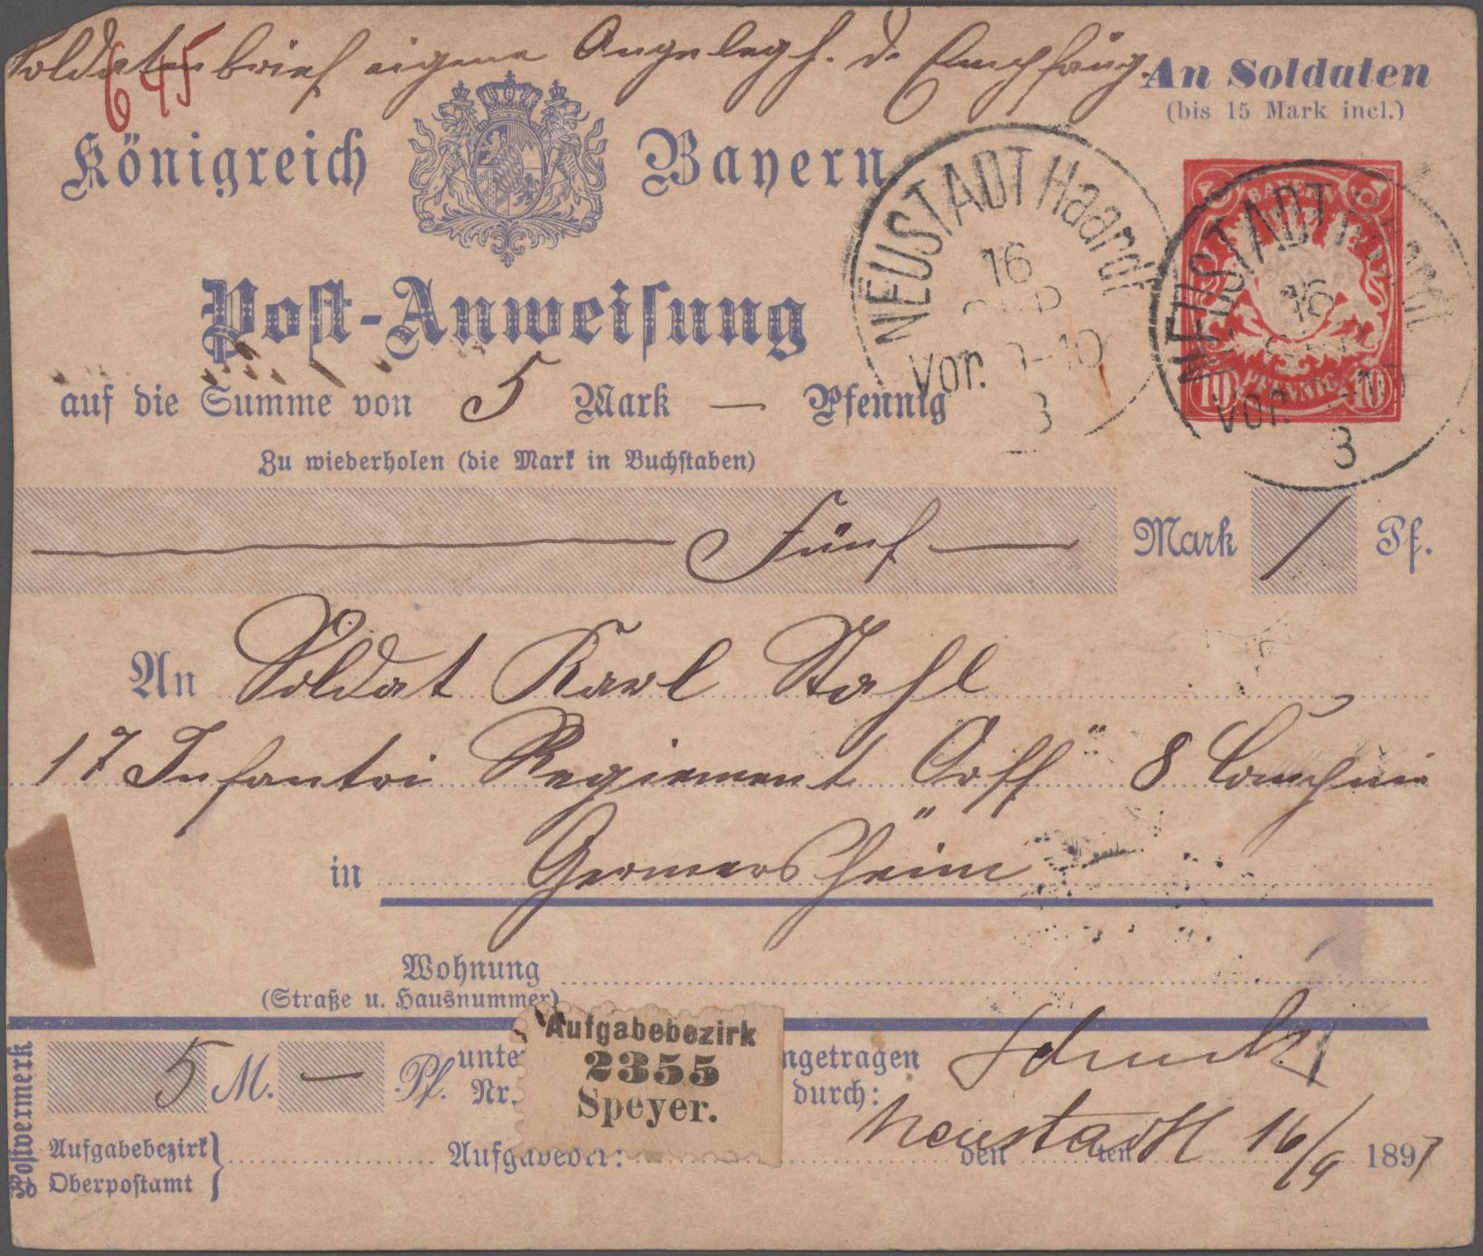 Soldatenbrief eigene Angelegh. d. Empfäng.
645
An Soldaten
(bis 15 Mark incl.)
Königreich Bayern
NEUSTADT Haardt
16
SEP
Vor. 9-10
3
BAYERN
10 PFENNIG 10
NEUSTADT Haardt
16
SEP
Vor. 9-10
3
Post-Anweisung
auf die Summe von 5 Mark — Pfennig
Zu wiederholen (die Mark in Buchstaben)
Fünf — Mark / Pf.
An Soldat Karl Stahl
17 Infantri Regiement „Orff" 8 Compnie
in Germersheim
Wohnung
(Straße u. Hausnummer)
Postvermerk
5 M. — Pf. unte
Nr.
Aufgabebezirk
2355
Speyer.
ngetragen
durch:
Aufgabebezirk
Oberpostamt
Aufgabeort:
Neustadt
den 16/9 ten 1897